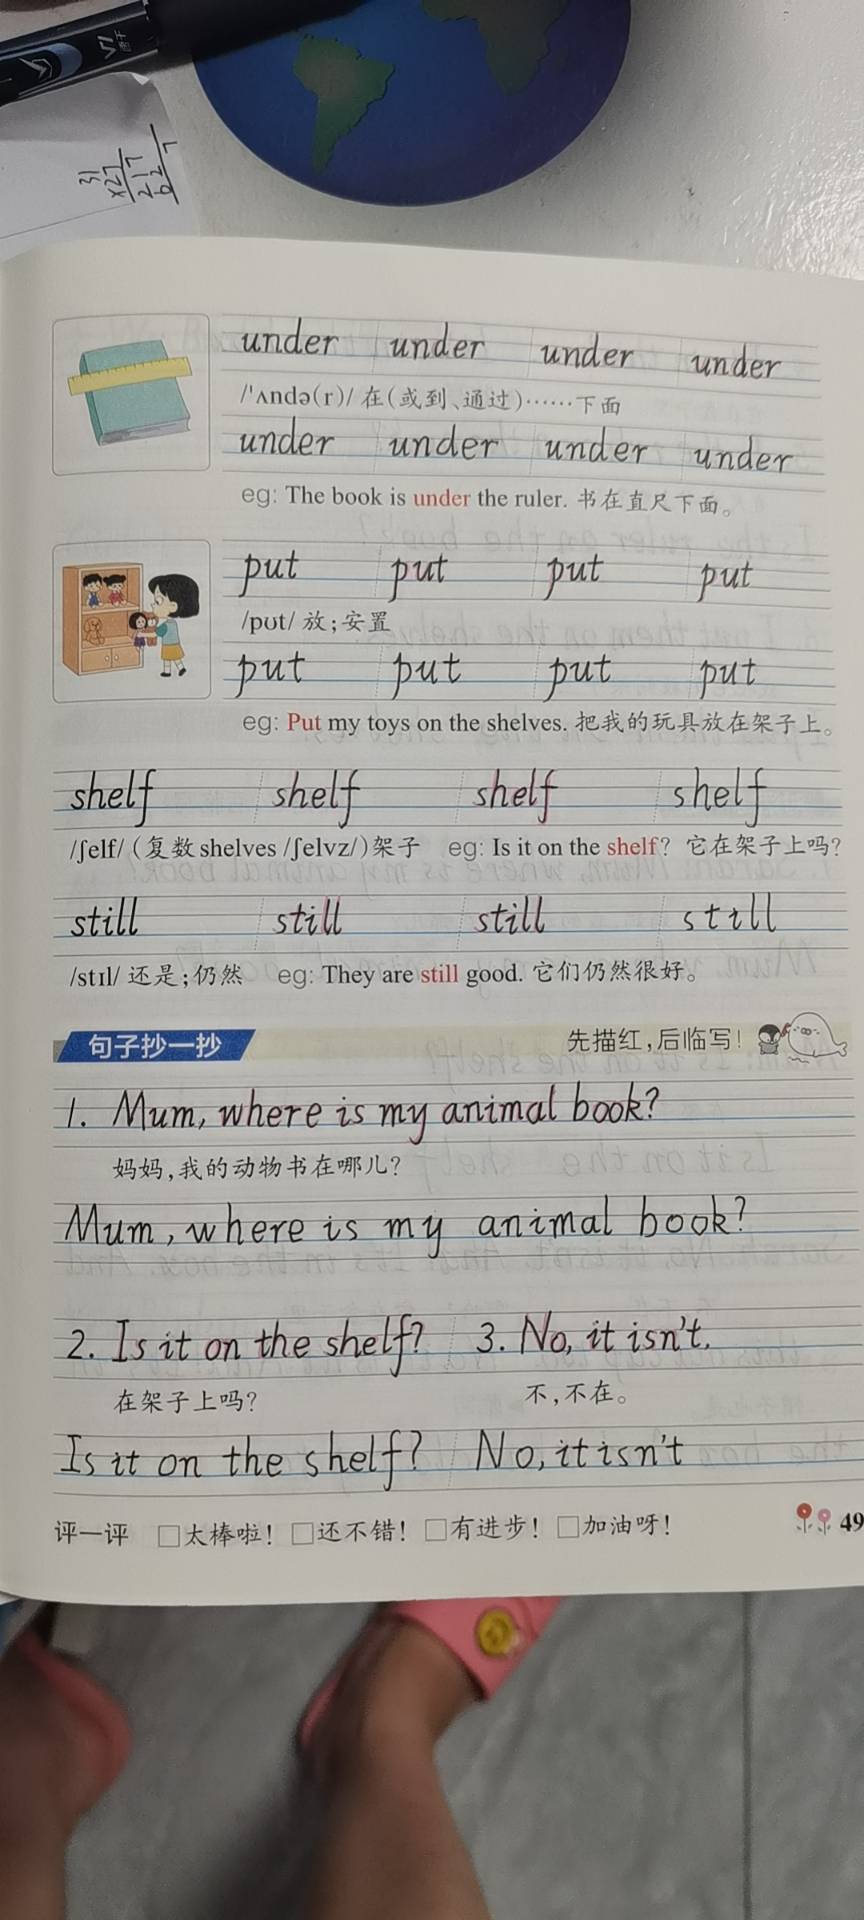 31
×27
217
62
7
under under under under
/ˈʌndə(r)/ 在(或到、通过)……下面
under under under under
eg: The book is under the ruler. 书在直尺下面。
put put put put
/pʊt/ 放;安置
put put put put
eg: Put my toys on the shelves. 把我的玩具放在架子上。
shelf shelf shelf shelf
/ʃelf/ (复数 shelves /ʃelvz/)架子 eg: Is it on the shelf? 它在架子上吗?
still still still still
/stɪl/ 还是;仍然 eg: They are still good. 它们仍然很好。
句子抄一抄 先描红,后临写!
1. Mum, where is my animal book?
妈妈,我的动物书在哪儿?
Mum, where is my animal book?
2. Is it on the shelf? 3. No, it isn't.
在架子上吗? 不,不在。
Is it on the shelf? No, it isn't
评一评 □太棒啦! □还不错! □有进步! □加油呀! 49